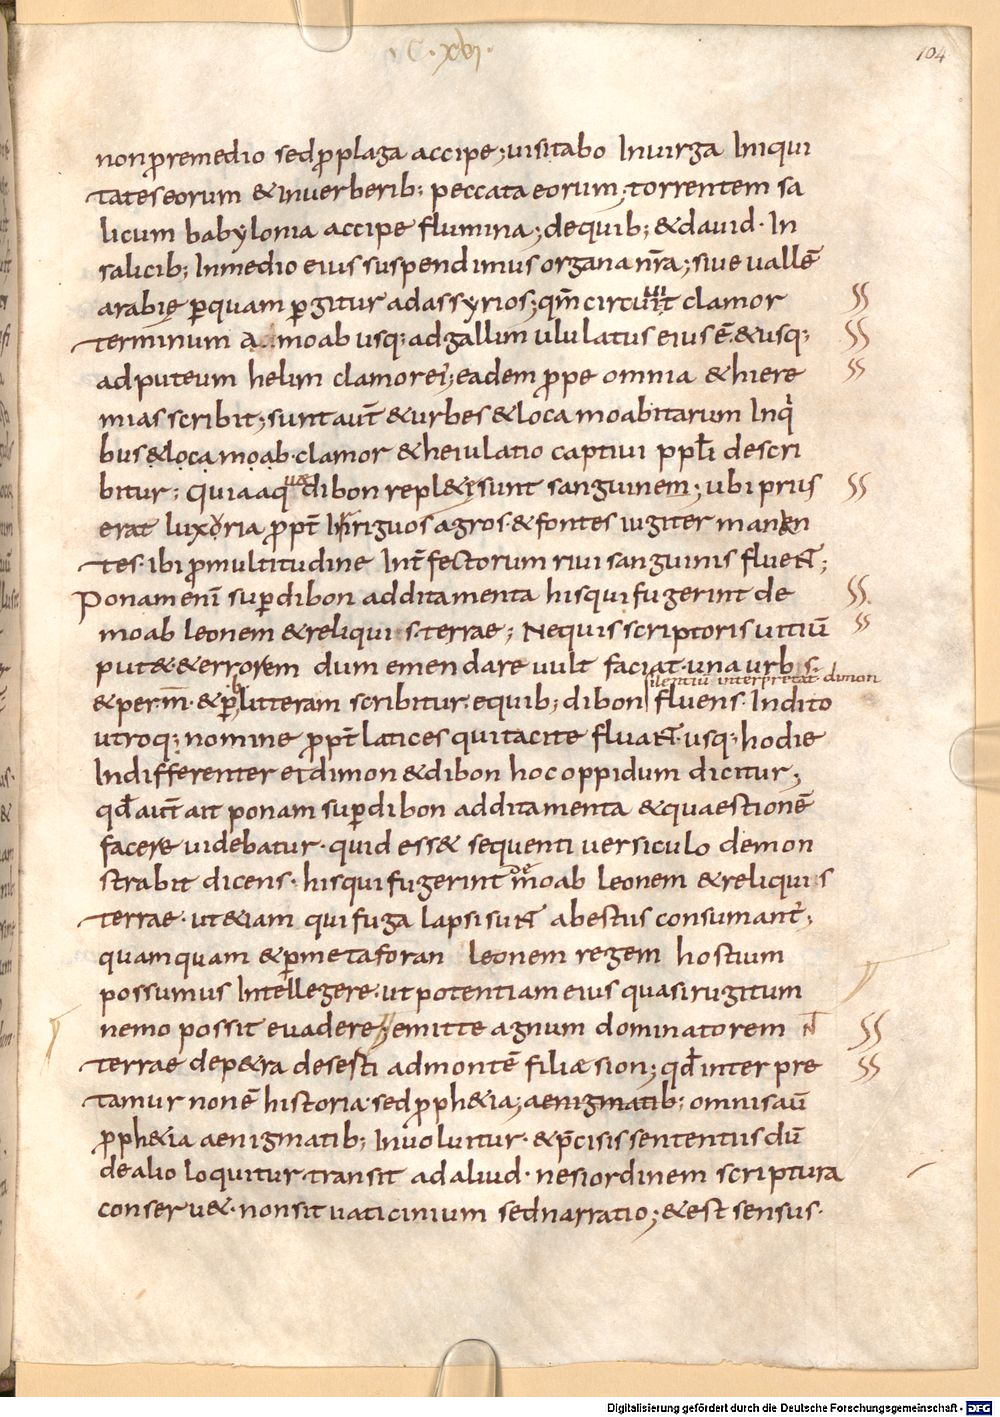 C. xvi.
104
non p̱remedio sed p̱roplaga accipe; uisitabo Inuirga Iniqui
tates eorum & Inuerberib; peccata eorum; torrentem sa
licum babylonia accipe flumina; dequib; & dauid. In
salicib; Inmedio eius suspendimus organa nr̄a; siue uallē
arabię ꝑquam ꝑgitur ad assyrios; qm̄ circuiit clamor
terminum moab usq; ad gallim ululatus eius ē. & usq;
ad puteum helim clamor ei; eadem ꝓpe omnia & hiere
mias scribit; sunt aut̄ & urbes & loca moabitarum Inqi
bus & loca moab. clamor & heiulatio captiui ppl̄i descri
bitur; Quia aquae dibon repl&ȩ sunt sanguinem; ubi prius
erat luxoria ꝓpt̄ Irriguos agros. & fontes iugiter manen
tes. ibi ꝓmultitudine Int̄fectorum riui sanguinis fluent;
Ponam eni supdibon additamenta his qui fugerint de
moab leonem & reliquis terrae; Nequis scriptoris uitiū
put&. & errorem dum emendare uult faciat. una urbs.
silentiū interpretat dimon
& per .m̄. & ꝑ b litteram scribitur. equib; dibon fluens. Indito
utroq; nomine ꝓpt̄ latices qui tacite fluant. usq; hodie
Indifferenter et dimon & dibon hoc oppidum dicitur;
qd̄ aut̄ ait ponam supdibon additamenta & quaestionē
facere uidebatur. quid ess& sequenti uersiculo demon
strabit dicens. his qui fugerint de moab leonem & reliquis
terrae. ut &iam qui fuga lapsi sunt a bestiis consumant̄;
quamquam & ꝑmetaforan leonem regem hostium
possumus Intellegere. ut potentiam eius quasi rugitum
nemo possit euadere; emitte agnum dominatorem
terrae dep&ra deserti ad montē filiae sion; qd̄ inter pre
tamur non ē historia. sed ꝓph&ia; aenigmatib; omnis aū
ꝓph&ia aenigmatib; Inuoluitur. & p̄cisis sententiis dū
de alio loquitur transit ad aliud. ne si ordinem scriptura
conseru&. non sit uaticinium sed narratio; & est sensus.
Digitalisierung gefördert durch die Deutsche Forschungsgemeinschaft - DFG